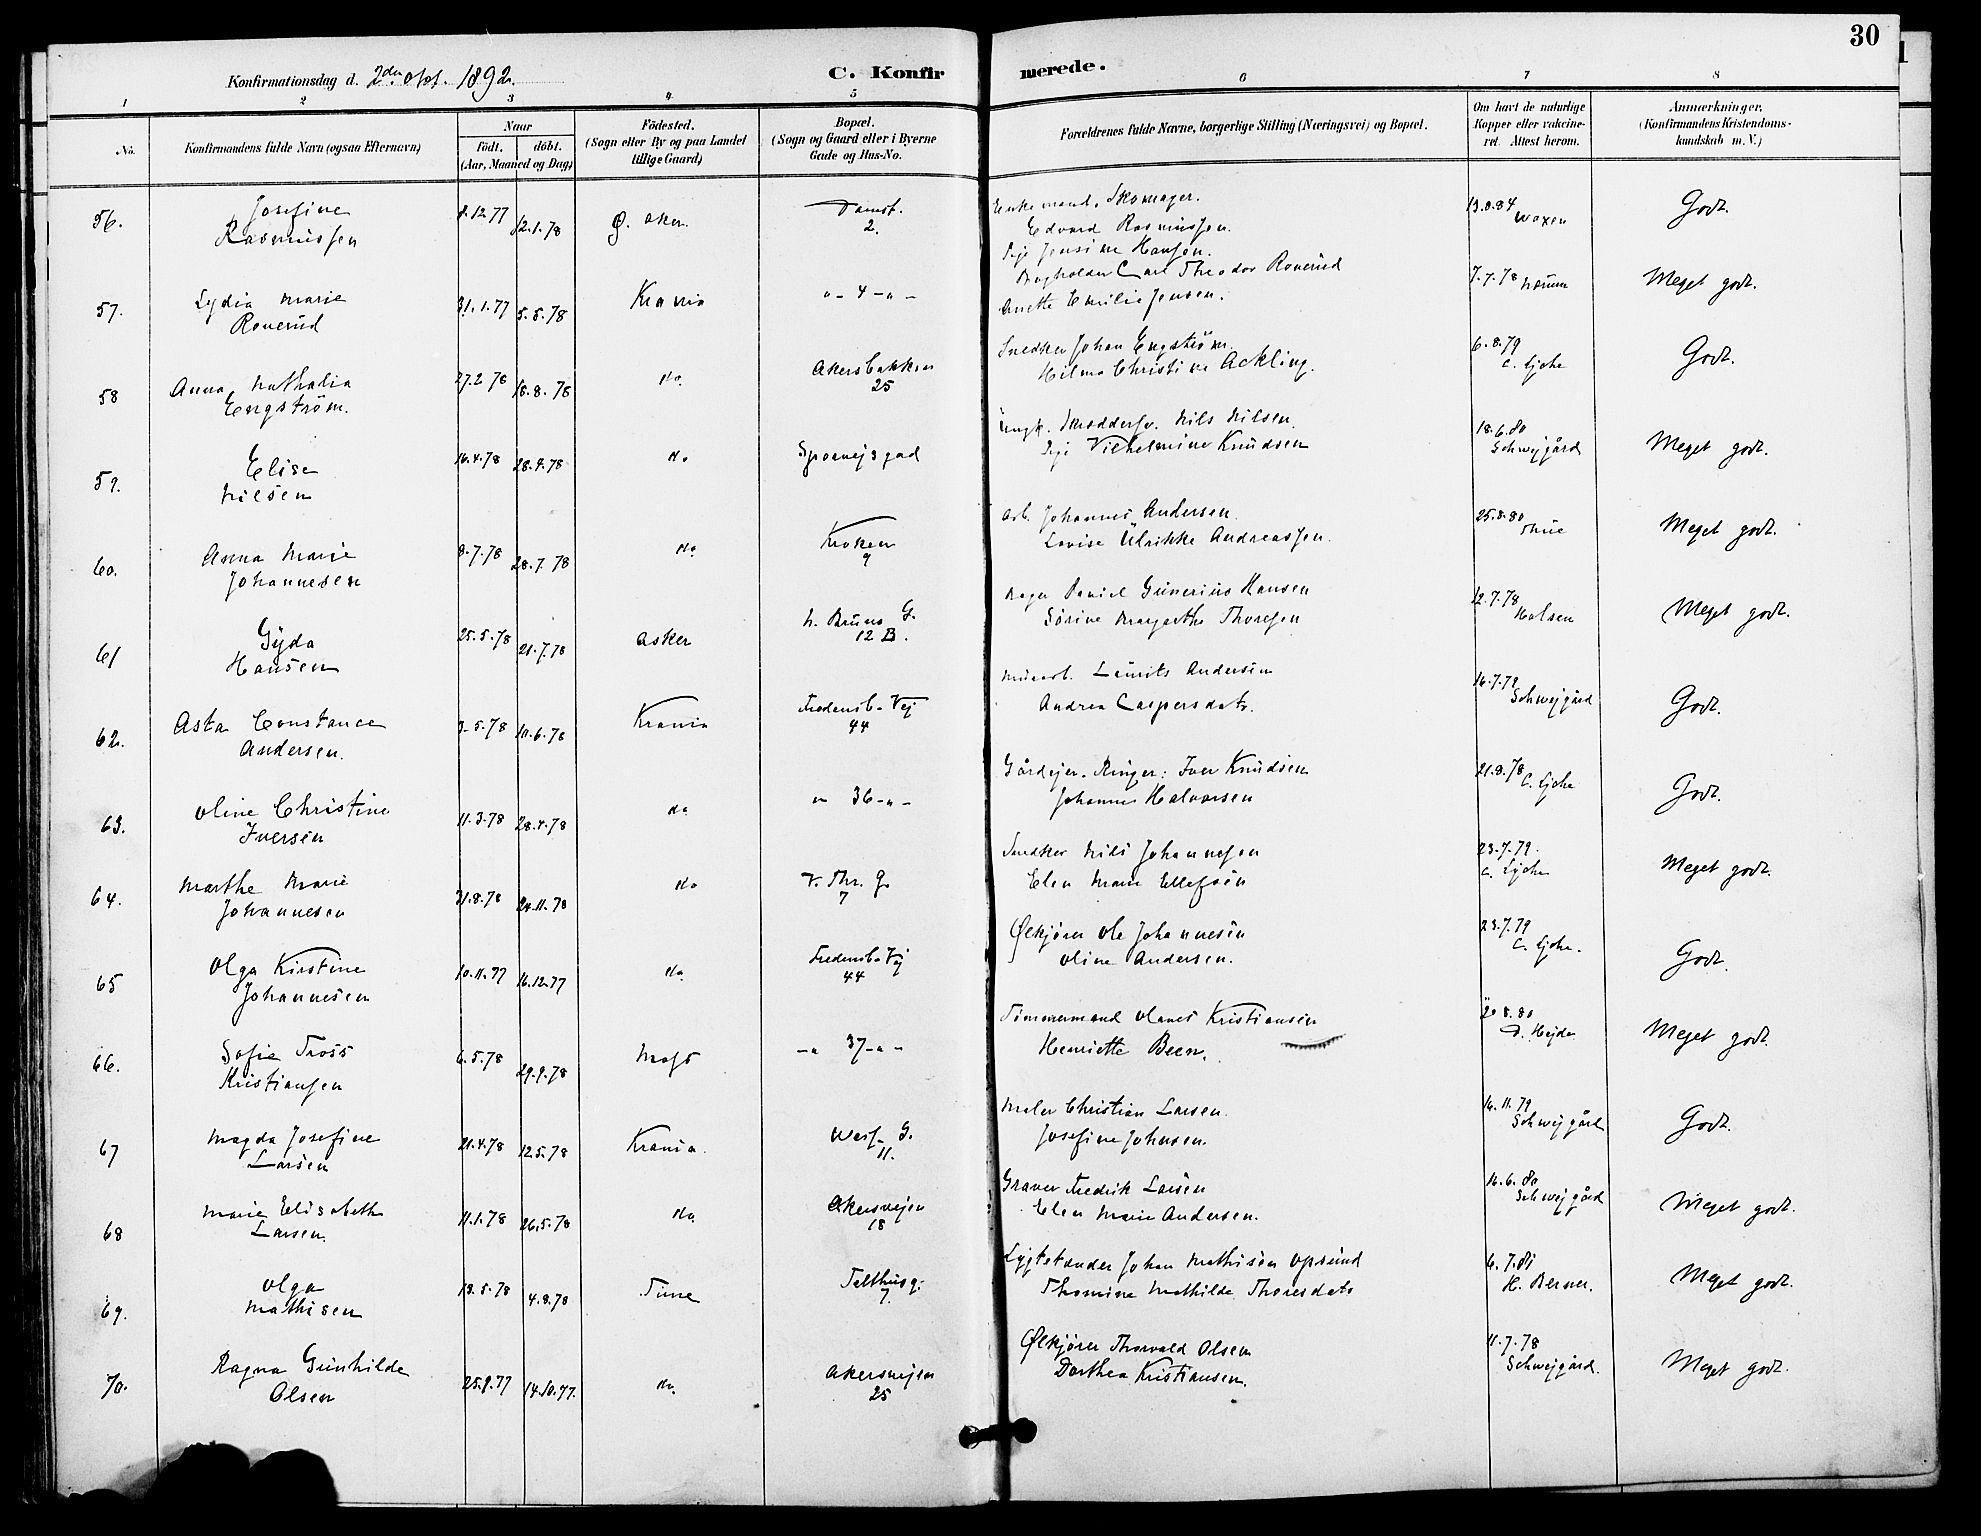 30
Konfirmationsdag d. 2den Okt. 1892.
C. Konfirmerede.
1 2 3 4 5 6 7 8
No. Konfirmandens fulde Navn (ogsaa Efternavn)
Naar födt. döbt. (Aar, Maaned og Dag)
Födested. (Sogn eller By og paa Landet tillige Gaard)
Bopæl. (Sogn og Gaard eller i Byerne Gade og Hus-No.
Forældrenes fulde Navne, borgerlige Stilling (Næringsvei) og Bopæl.
Om havt de naturlige Kopper eller vakcineret. Attest herom.
Anmærkninger. (Konfirmandens Kristendomskundskab m. V.)
56. Josefine Rasmussen 8.12.77 12.1.78 Ø. Aker. Damst. 2. Enkemand, Skomager. Edvard Rasmussen. Pige Jensine Hansen. 13.8.84 Waxen Godt.
57. Lydia Marie Roverud 31.1.77 5.5.78 Krania " - 4 - " - Bogholder Carl Theodor Roverud Anette Emilie Jensen. 7.7.78 Meget godt.
58 Anna Nathalia Engström. 27.2 78 18.8.78 do. Akersbakken 25 Snedker Johan Engström. Hilma Christine Ackling. 6.8.79 C. Ljche Godt.
59. Elise Nilsen 16.4.78 28.4.78 do Sporvejsgad Ungk. Skræddersv. Nils Nilsen. Pige Vilhelmine Knudsen 18.6.80 Schwejgård Meget godt.
60. Anna Marie Johannesen 8.7.78 28.7.78 do Kroken 9 Arb. Johannes Andersen. Lovise Ulrikke Andreassen. 25.8.80 Thue Meget godt.
61 Gyda Hansen 25.5.78 21.7.78 Asker N. Bruns G. 12 B. Bager Daniel Gunerius Hansen Sørine Margrethe Thoresen 12.7.78 Holsen Meget godt.
62. Asta Constance Andersen. 3.5.78 10.6.78 Krania Fredensb. Vej 44 Murarb. Laurits Andersen Andrea Caspersdatr. 16.7.79 Schwejgård Godt.
63. Oline Christine Iversen 11.3.78 28.4.78 do " 36 - " - Gårdejer. Ringer: Iver Knudsen Johanne Halvorsen 21.9.78 C. Ljche Godt.
64. Marthe Marie Johannesen 31.8.78 24.11.78 do V. Thr. G. 7 Snedker Nils Johannesen Elen Marie Ellefsen 23.7.79. C. Ljche Meget godt.
65 Olga Kirstine Johannesen 10.11.77 16.12.77 do. Fredensb. Vej 44 Ølkjører Ole Johannesen Oline Andersen. 23.7.79 C. Ljche. Godt.
66. Sofie Tross Kristiansen 6.5.78 29.9.78 Moss - " 37 - " - Tømmermand Olaves Kristiansen Henriette Been. 20.8.80 D. Hejde Meget godt.
67 Magda Josefine Larsen 21.4.78 12.5.78 Krania. Wess. G. 11. Maler Christian Larsen. Josefine Johnsen. 16.11.79 Schwejgård Godt.
68 Marie Elisabeth Larsen. 11.1.78 26.5.78 do. Akersvejen 18 Graver Fredrik Larsen Elen Marie Andersen. 16.6.80 Schwejgård Meget godt.
69. Olga Mathisen 13.5.78 4.8.78 Tune Telthusg. 7. Lygtetænder Johan Mathisen Opsund Thomine Mathilde Thoresdatr 6.7.81 H. Berner. Meget godt.
70. Ragna Gunhilde Olsen 25.9.77 14.10.77. do. Akersvejen 25 Ølkjører Thorvald Olsen Dorthea Kristiansen. 11.7.78 Schwejgård. Meget godt.